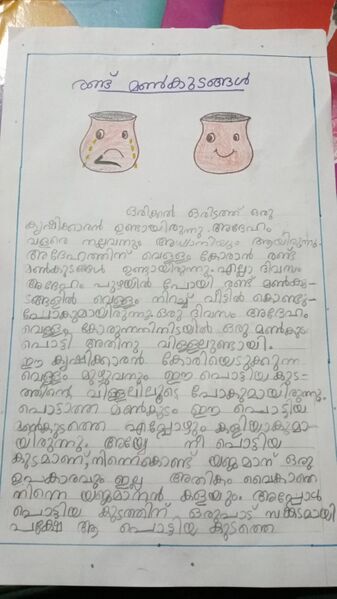 രണ്ട് മൺകുടങ്ങൾ
ഒരിക്കൽ ഒരിടത്ത് ഒരു
കൃഷിക്കാരൻ ഉണ്ടായിരുന്നു. അദ്ദേഹം
വളരെ നല്ലവനും അധ്വാനിയും ആയിരുന്നു.
അദ്ദേഹത്തിന് വെള്ളം കോരാൻ രണ്ട്
മൺകുടങ്ങൾ ഉണ്ടായിരുന്നു. എല്ലാ ദിവസം
അദ്ദേഹം പുഴയിൽ പോയി രണ്ട് മൺകു-
ടങ്ങളിൽ വെള്ളം നിറച്ച് വീട്ടിൽ കൊണ്ടു-
പോകുമായിരുന്നു. ഒരു ദിവസം അദ്ദേഹം
വെള്ളം കോരുന്നതിനിടയിൽ ഒരു മൺകുടം
പൊട്ടി അതിനു വിള്ളലുണ്ടായി.
ഈ കൃഷിക്കാരൻ കോരിയെടുക്കുന്ന
വെള്ളം മുഴുവനും ഈ പൊട്ടിയ കുട-
ത്തിന്റെ വിള്ളലിലൂടെ പോകുമായിരുന്നു.
പൊട്ടാത്ത മൺകുടം ഈ പൊട്ടിയ
മൺകുടത്തെ എപ്പോഴും കളിയാക്കുമാ-
യിരുന്നു. അയ്യേ നീ പൊട്ടിയ
കുടമാണ് നിന്നെക്കൊണ്ട് യജമാന് ഒരു
ഉപകാരവും ഇല്ല അതികം വൈകാതെ
നിന്നെ യജമാനൻ കളയും. അപ്പോൾ
പൊട്ടിയ കുടത്തിന് ഒരുപാട് സങ്കടമായി
പക്ഷേ ആ പൊട്ടിയ കുടത്തെ